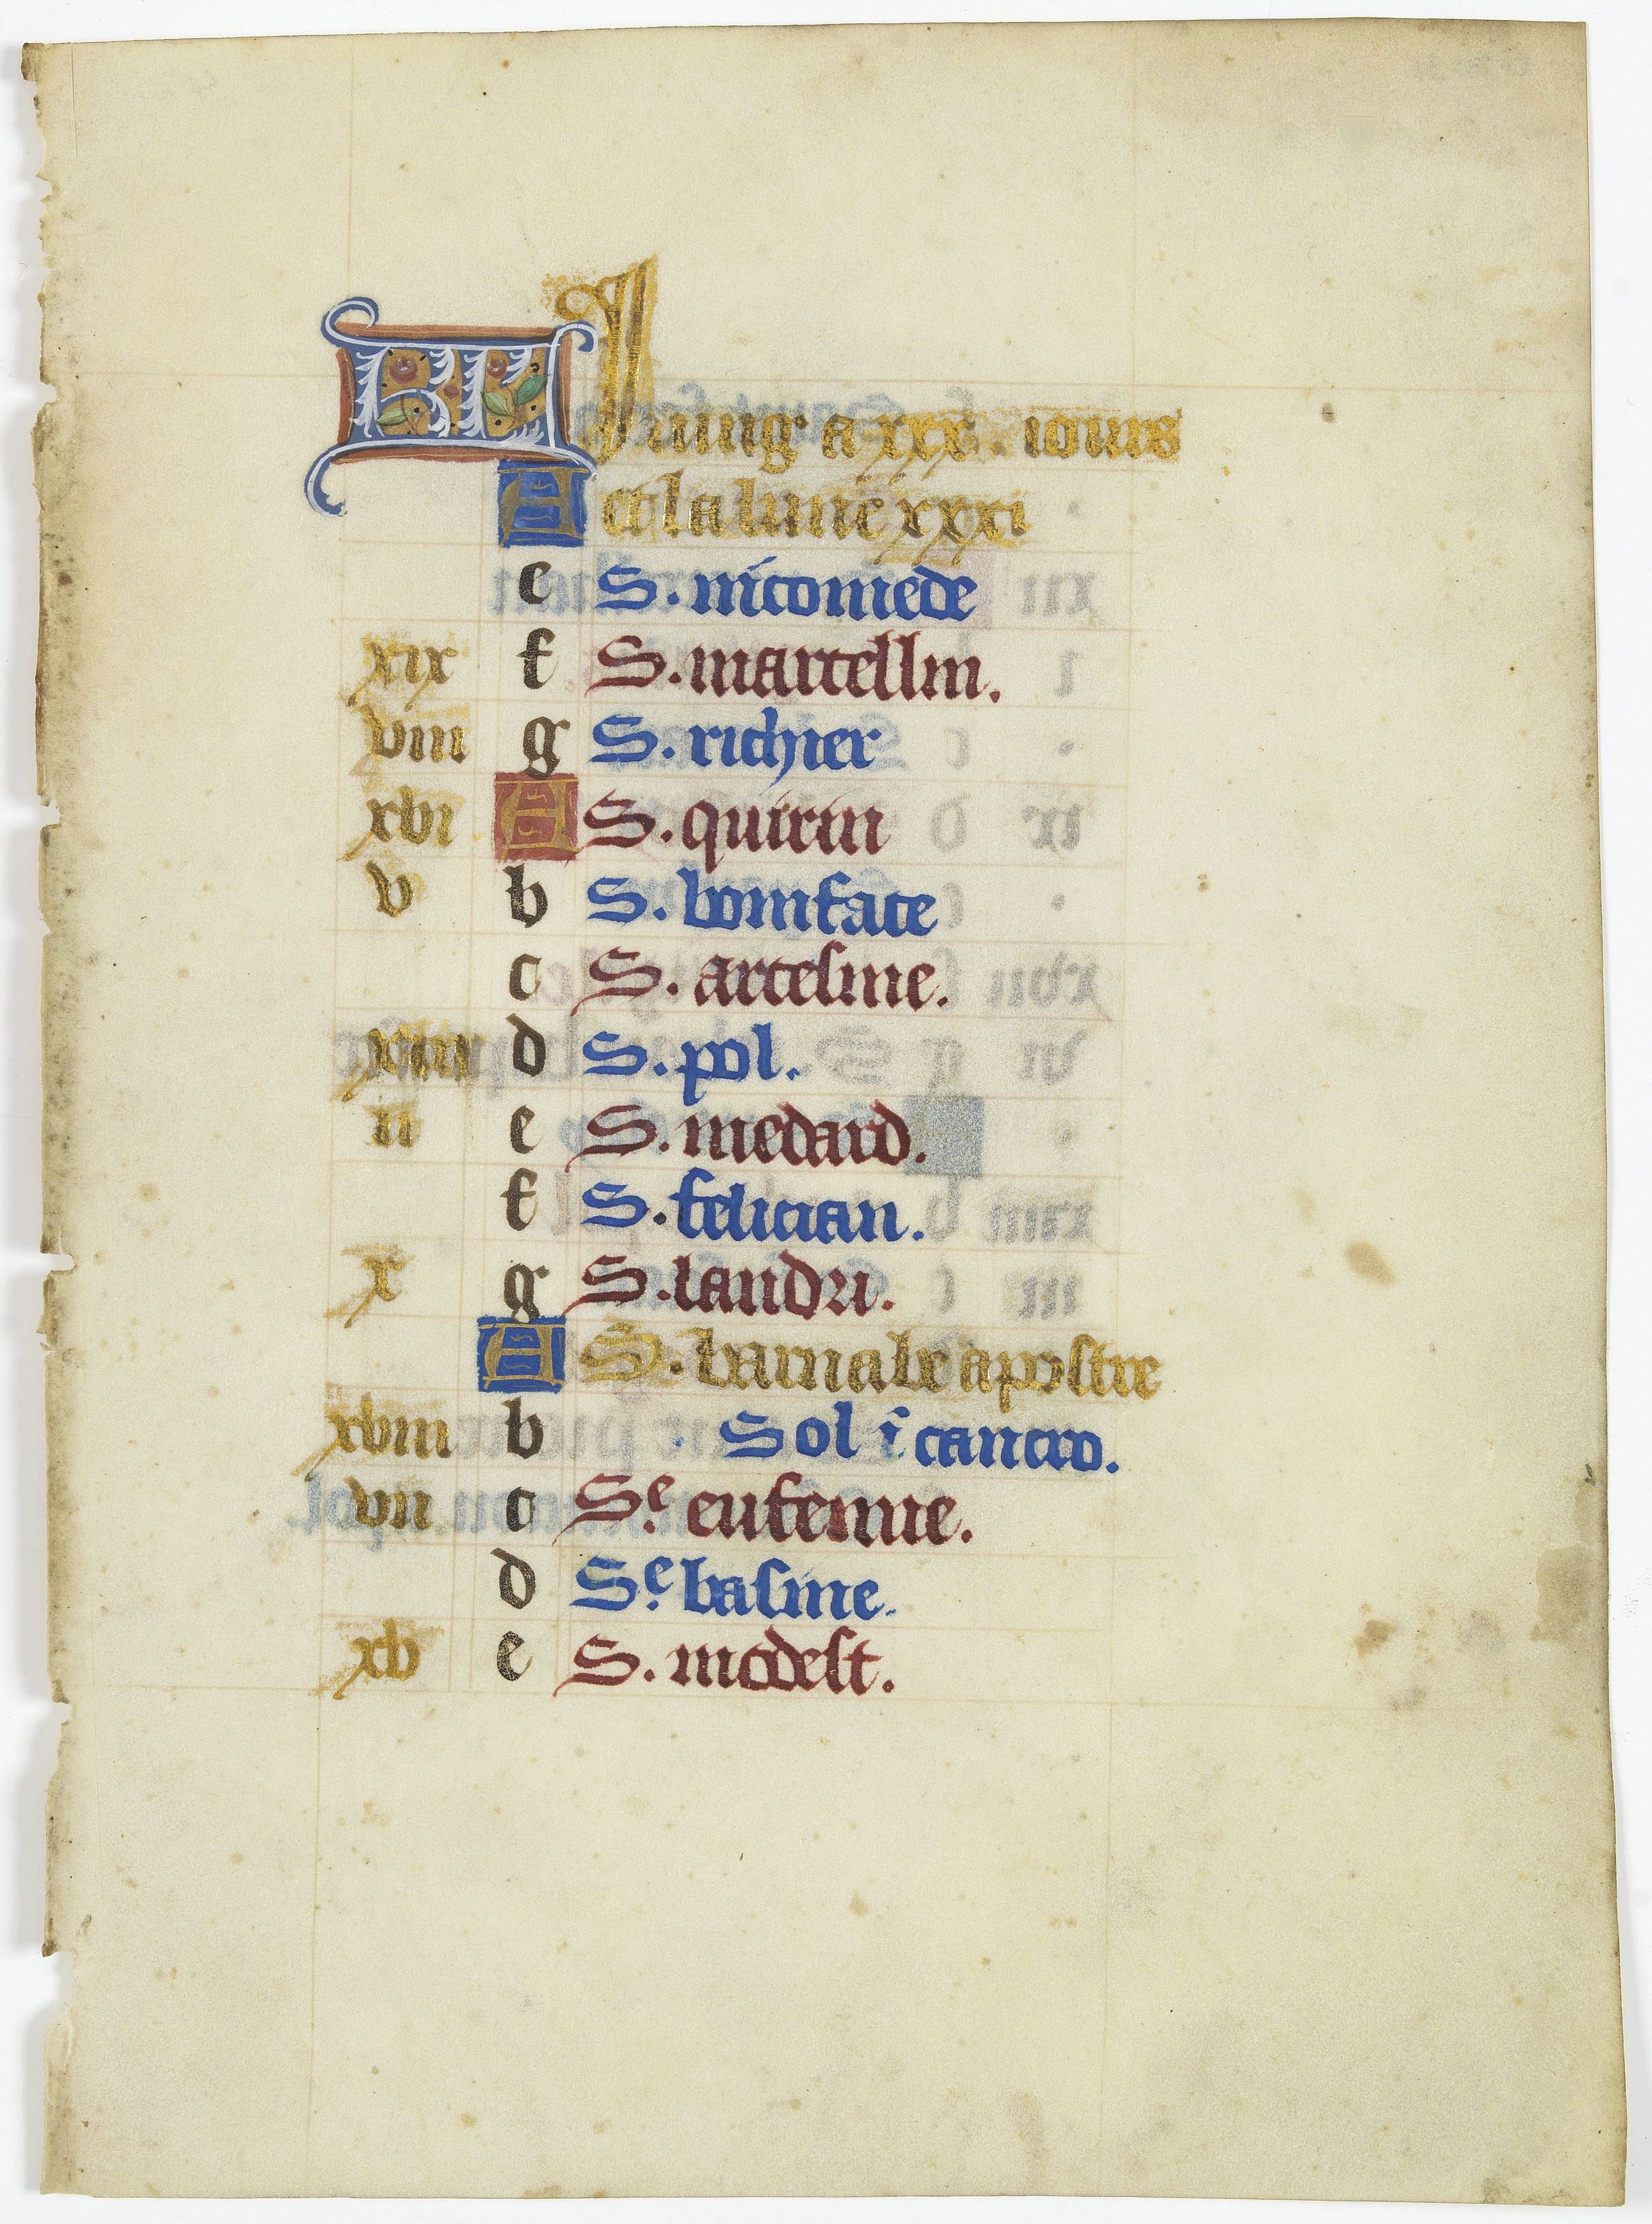 KL Juing a xxx. iours
A et la lune xxxi
e S. nicomede
xix f S. marcellin.
viii g S. richier
xvi A S. quirin
v b S. boniface
c S. arcesme.
xiii d S. pol.
ii e S. medard.
f S. felician.
x g S. landri.
A S. barnabe apostre
xviii b Sol ī cancro.
vii c Sᵉ. eufemie.
d Sᵉ. basine.
xv e S. modest.